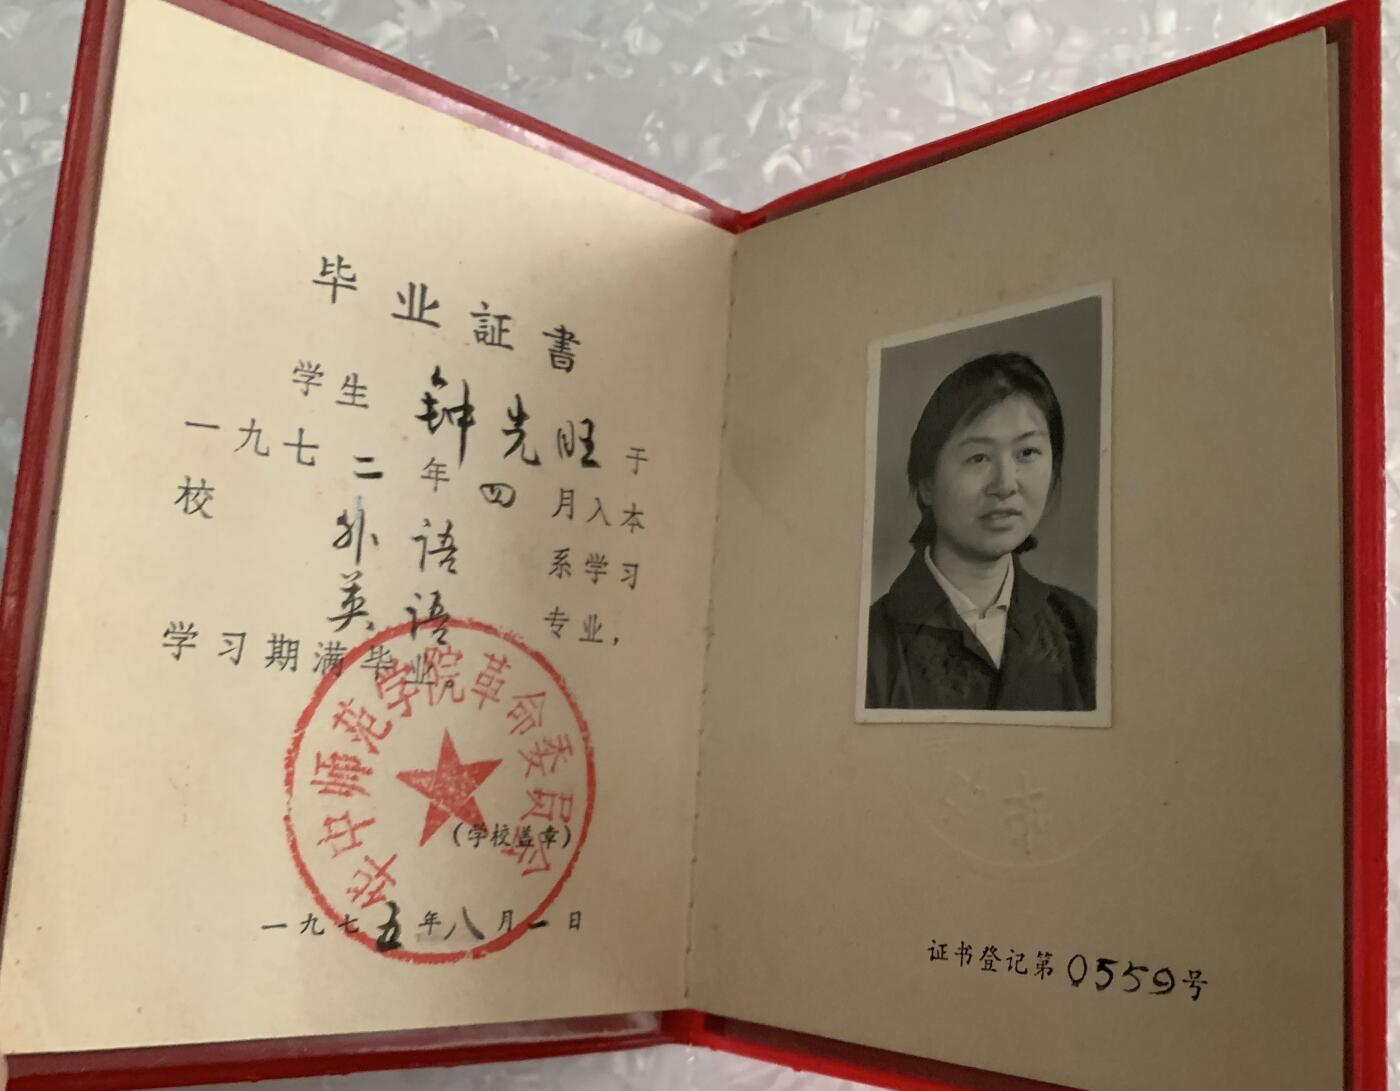 毕业証書
学生 钟先旺 于
一九七二年四月入本
校 外语 系学习
英语 专业,
学习期满毕业。
华中师范学院革命委员会
(学校盖章)
一九七五年八月一日
证书登记第0559号